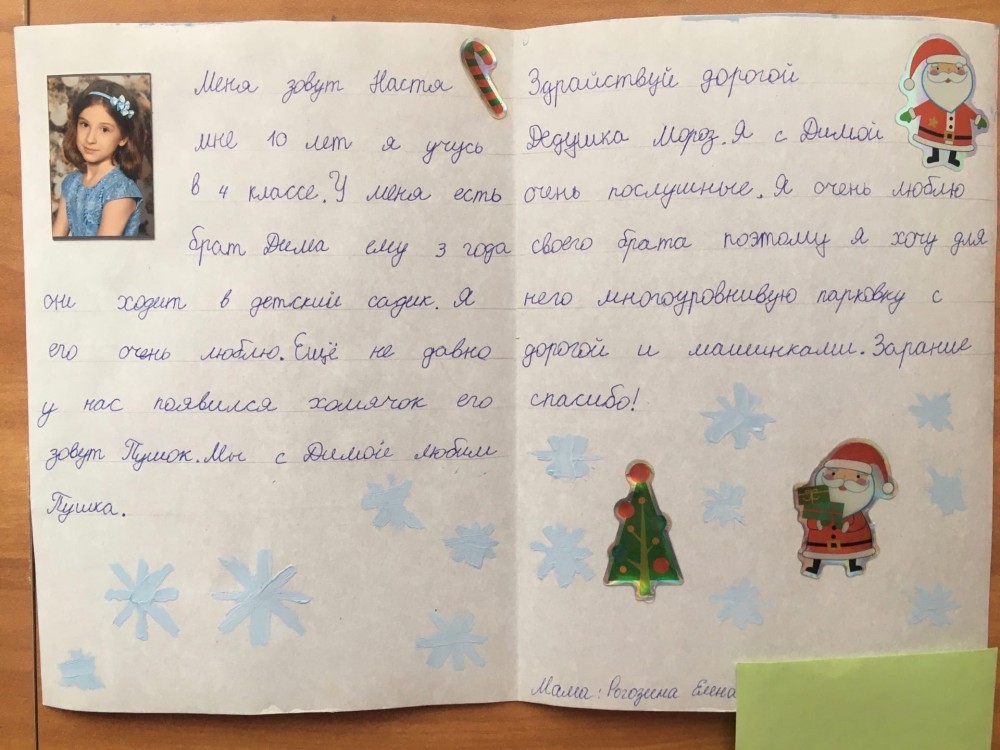 Меня зовут Настя
мне 10 лет я учусь
в 4 классе. У меня есть
брат Дима ему 3 года
он ходит в детский садик. Я
его очень люблю. Ещё не давно
у нас появился хомячок его
зовут Пушок. Мы с Димой любим
Пушка.
Здрайствуй дорогой
Дедушка Мороз. Я с Димой
очень послушные. Я очень люблю
своего брата поэтому я хочу для
него многоуровнивую парковку с
дорогой и машинками. Зарание
спасибо!
Мама: Рогозина Елена